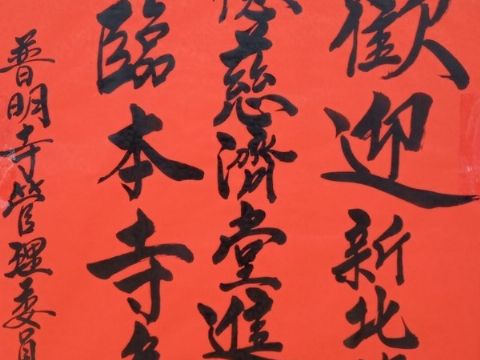 歡迎新北
慈濟堂進
臨本寺
普明寺管理委員